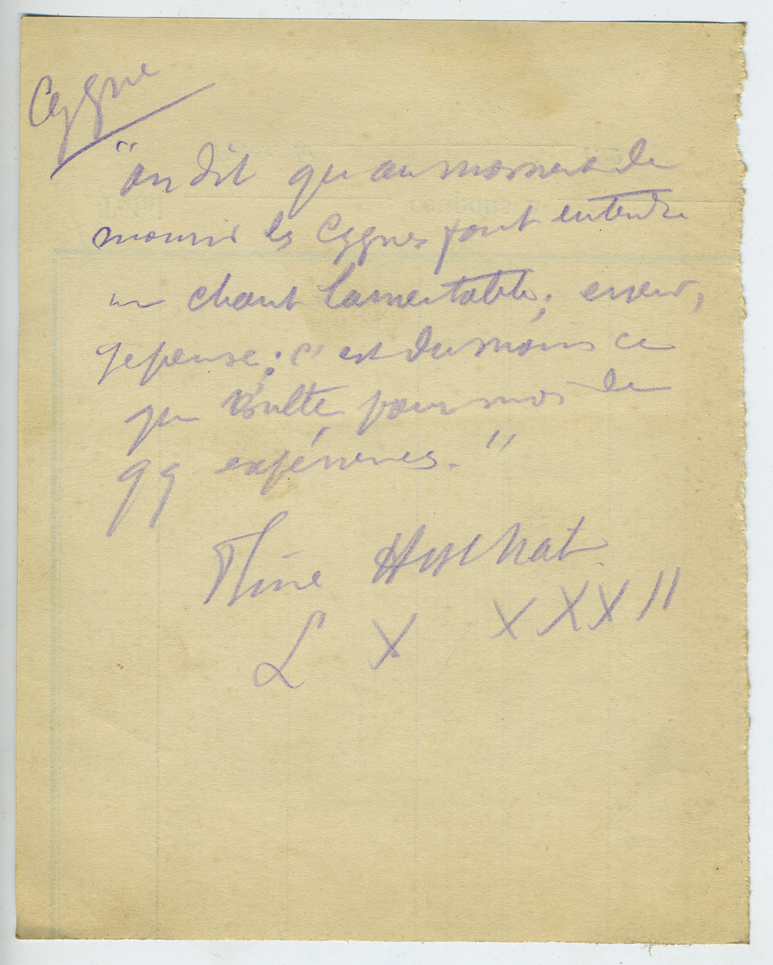 Cygne
"on dit qu'au moment de
mourir les Cygnes font entendre
un chant lamentable; erreur,
je pense; c'est du moins ce
qui résulte pour moi de
qq expériences."
Pline Hist Nat.
L X XXXII